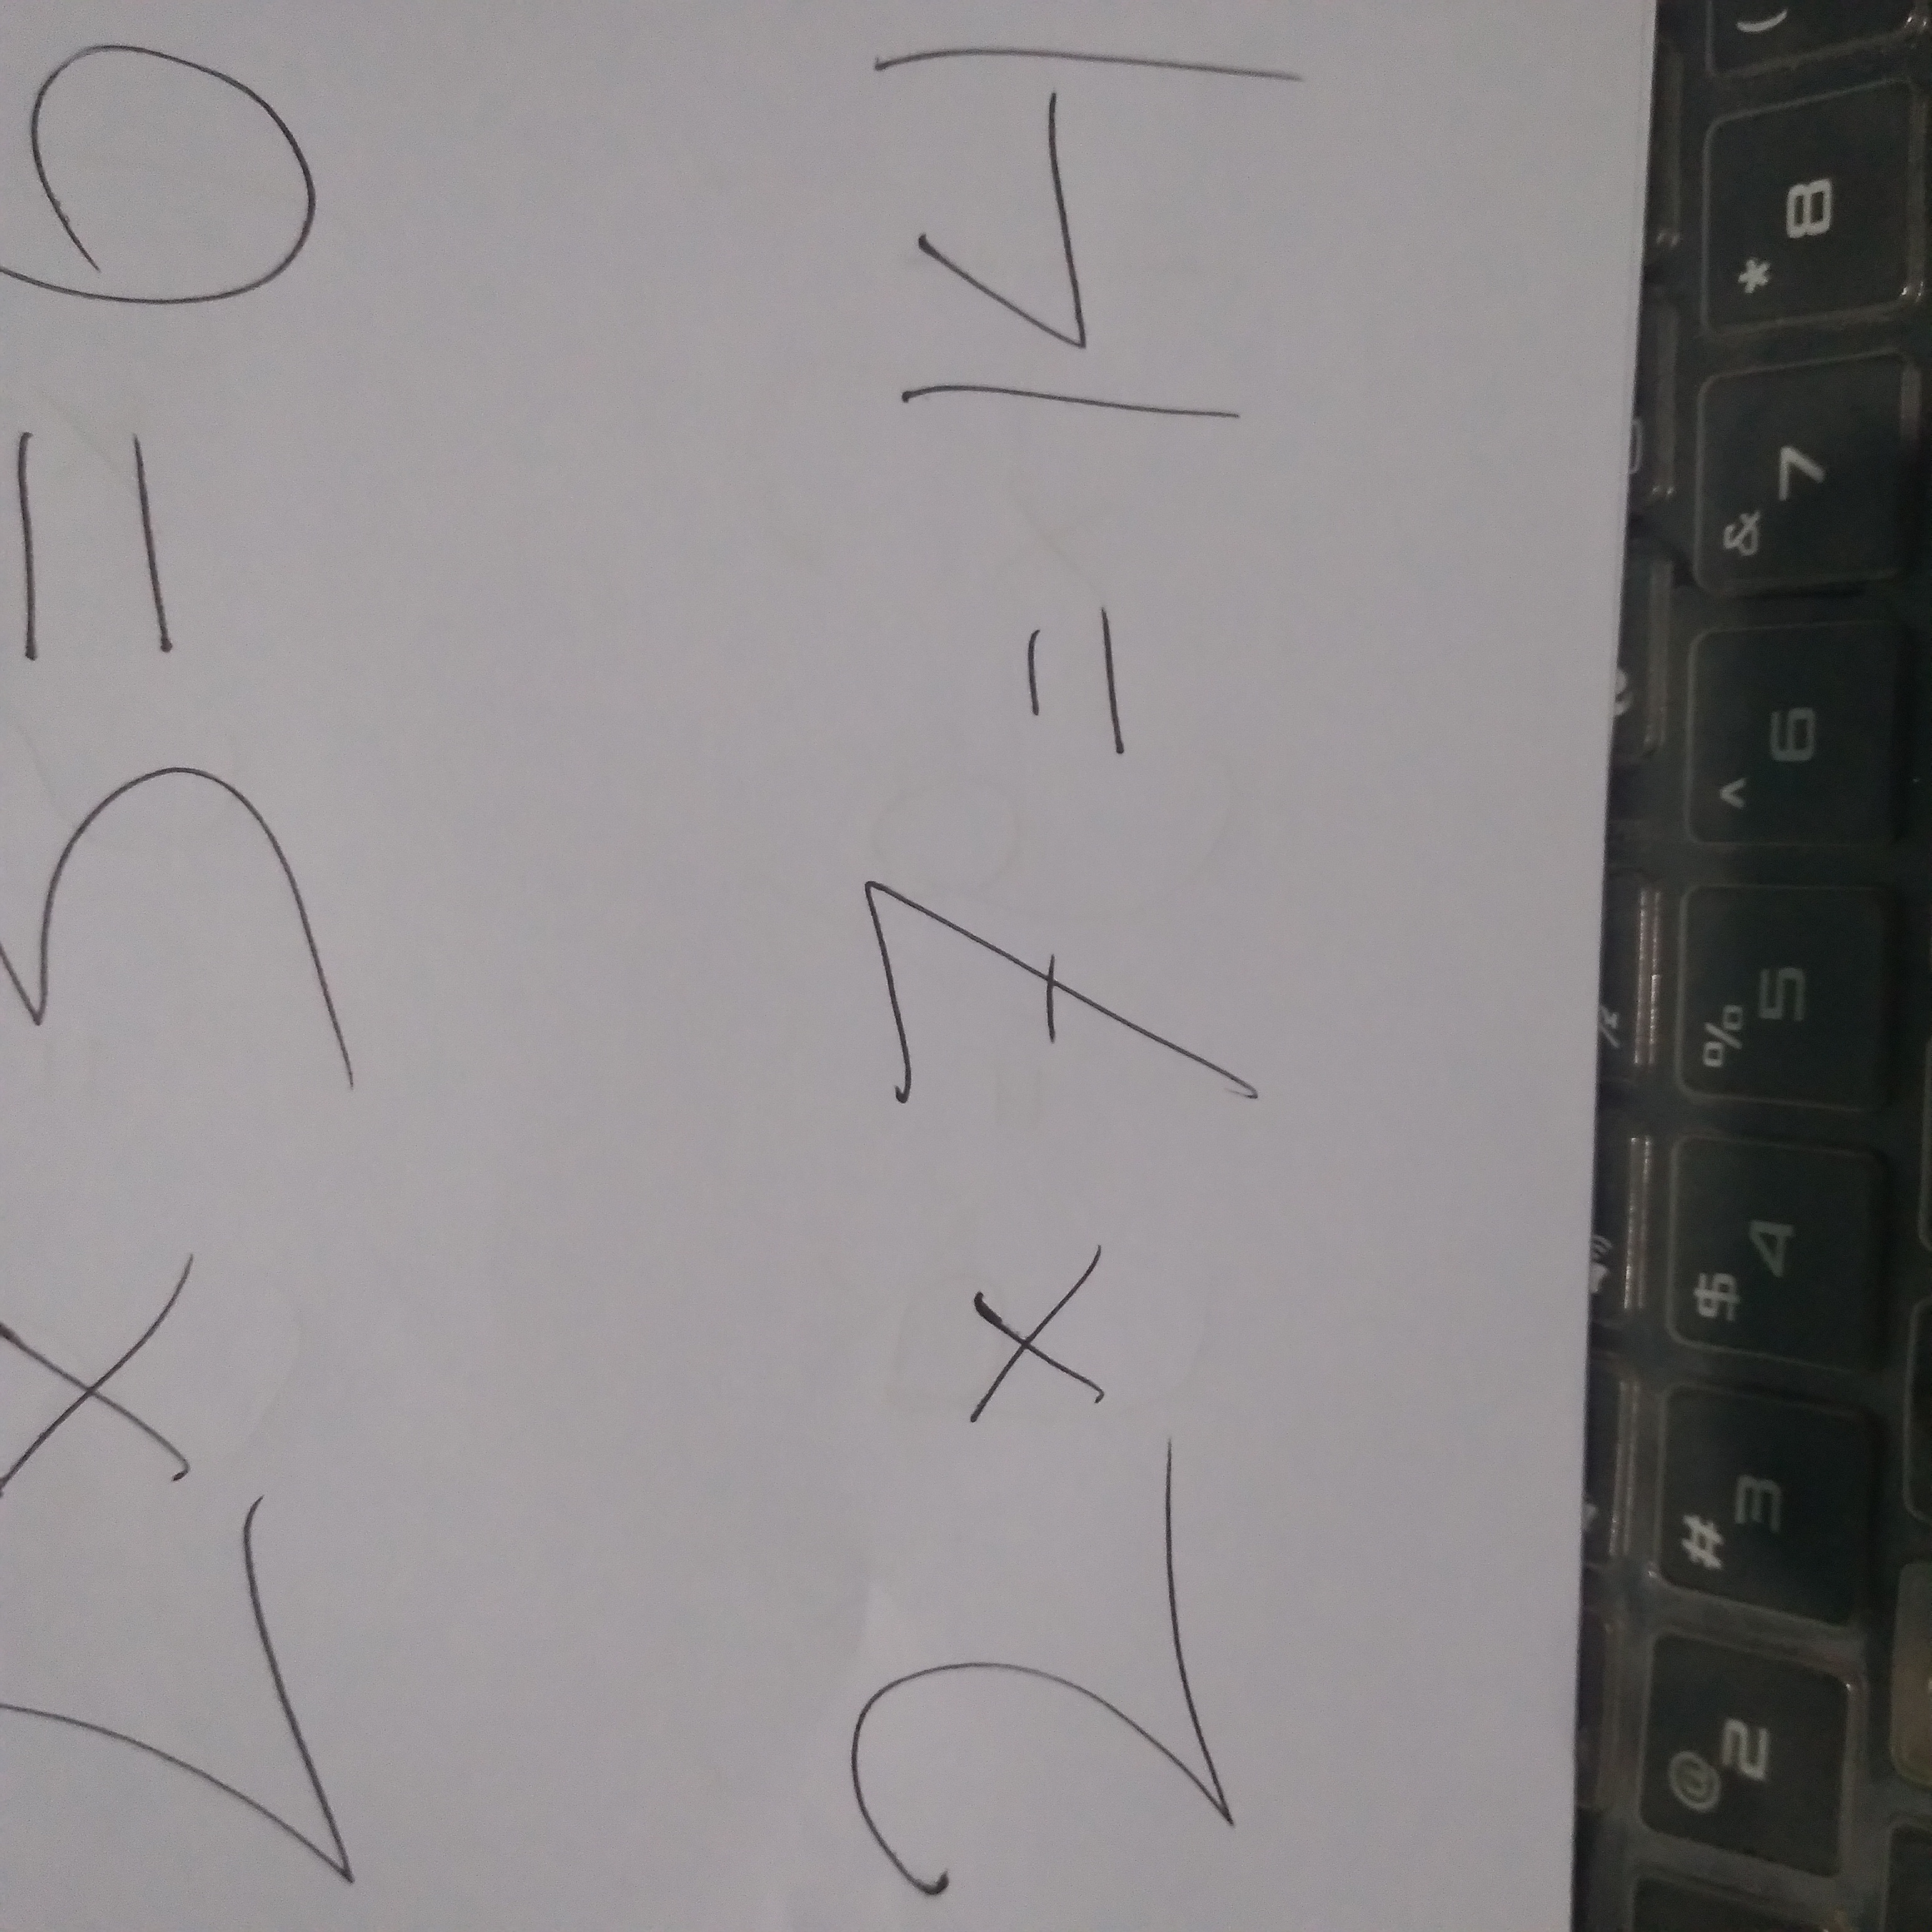 2 x 3 = 6
2 x 7 = 14
@ # $ % ^ & * (
2 3 4 5 6 7 8